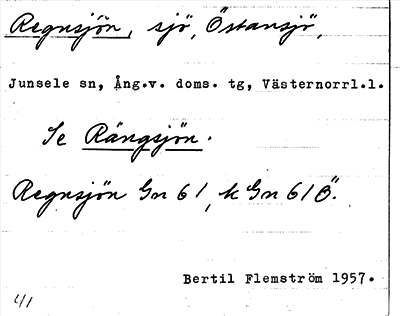 Regnsjön, sjö, Östansjö,
Junsele sn, Ång.v. doms. tg, Västernorrl.l.
Se Rängsjön.
Regnsjön Gn 61, k Gn 61 Ö.
Bertil Flemström 1957.
41